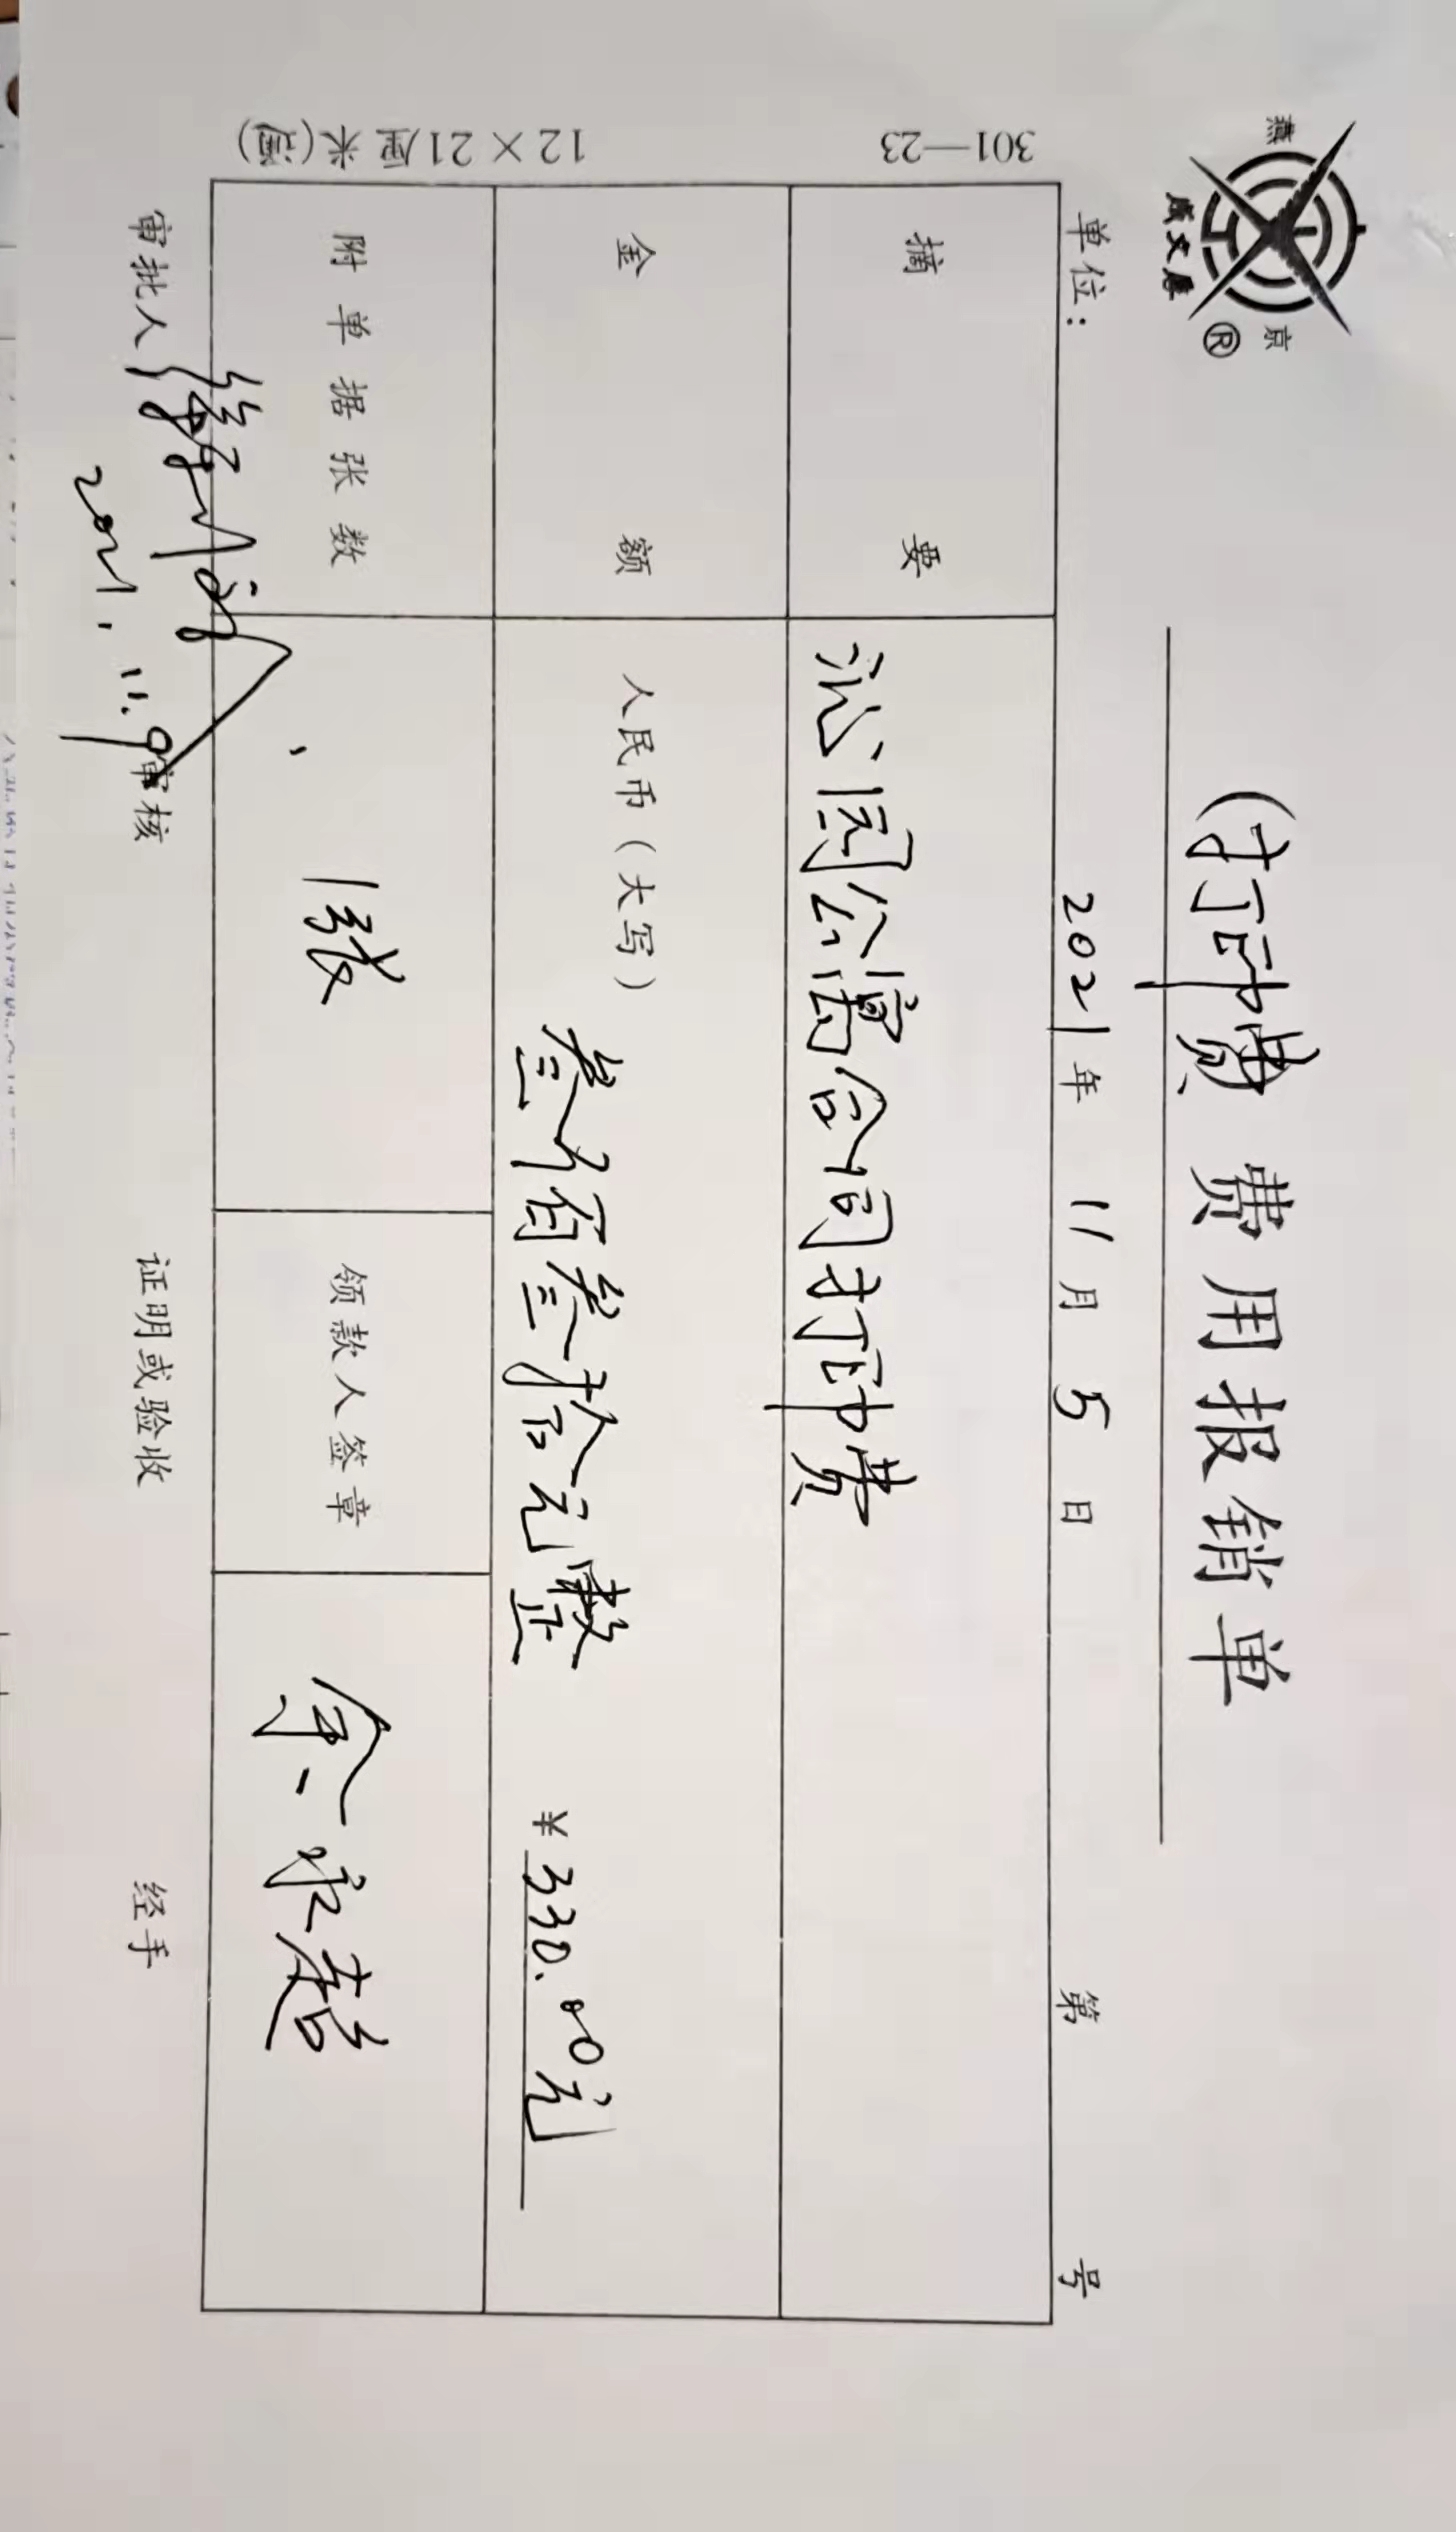 燕京 ®
成文厚
(打印费) 费用报销单
单位： 2021年 11月 5日 第 号
摘要 沁园公寓合同打印费
金额 人民币（大写） 叁佰叁拾元整 ¥330.00元
附单据张数 1张 领款人签章 余永超
审批人 审核 证明或验收 经手
2021.11.9
301—23 12×21厘米(通)